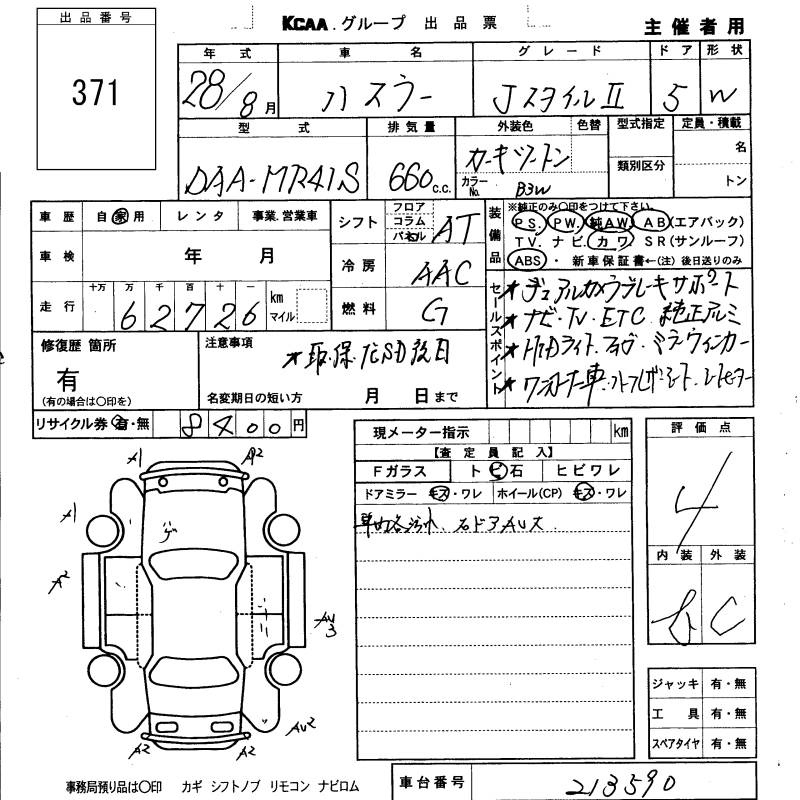 出品番号
371
KCAA.グループ 出品票
主催者用
年式 車名 グレード ドア 形状
28/8月 ハスラー JスタイルII 5 W
型式 排気量 外装色 色替 型式指定 定員・積載
DAA-MR41S 660c.c. カーキツートン 名
カラーNo. B3W 類別区分 トン
車歴 自家用 レンタ 事業.営業車
車検 年 月
走行 十万 万 千 百 十 一
6 2 7 2 6 km マイル
シフト フロア コラム パネル AT
冷房 AAC
燃料 G
装備品
※純正のみ〇印をつけて下さい。
PS. PW. 純AW. AB(エアバック)
TV. ナビ. カワ SR(サンルーフ)
ABS ・ 新車保証書←(注) 後日送りのみ
セールスポイント
★デュアルカメラブレーキサポート
★ナビ・TV・ETC 純正アルミ
★HIDライト
★ワンオーナー車
修復歴 箇所
有
(有の場合は〇印を)
注意事項
★取.保.ナビSD後日
名変期日の短い方 月 日まで
リサイクル券 有・無 8400円
現メーター指示 km
【査定員記入】
Fガラス トビ石 ヒビワレ
ドアミラー キズ・ワレ ホイール(CP) キズ・ワレ
右ドアAU大
評価点
4
内装 外装
b C
A1 A2
A1
A2
AU3
A2 A2 AU2
ジャッキ 有・無
工具 有・無
スペアタイヤ 有・無
事務局預り品は〇印 カギ シフトノブ リモコン ナビロム
車台番号 213590